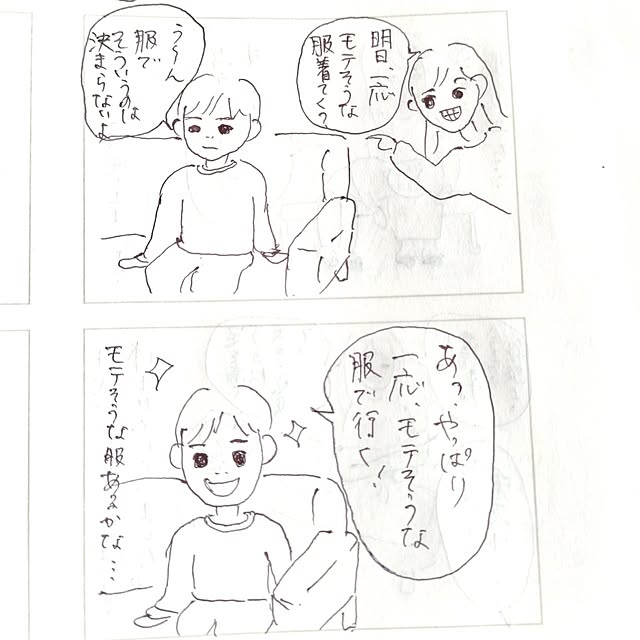 明日、一応
モテそうな
服着てく？
う〜ん
服で
そういうのは
決まらないよ
あっ、やっぱり
一応、モテそうな
服で行く！
モテそうな服あるかな…